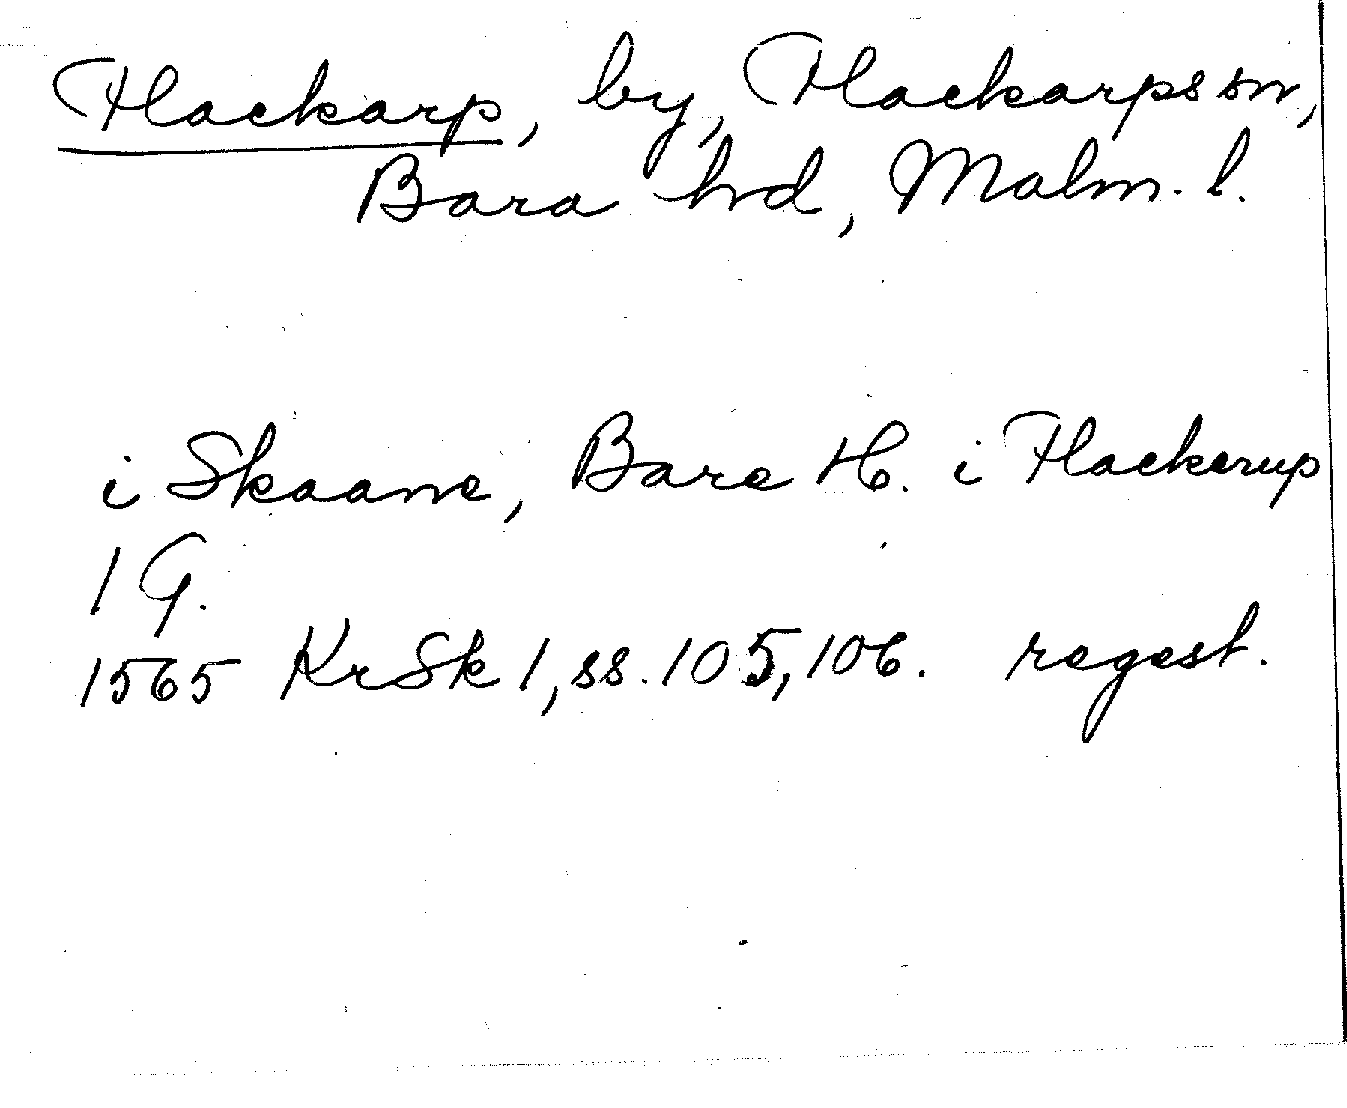 Flackarp, by, Flackarps sn,
Bara hd, Malm. l.
i Skaane, Bare H. i Flackerup
1 G.
1565 KrSk 1, ss. 105, 106. regest.